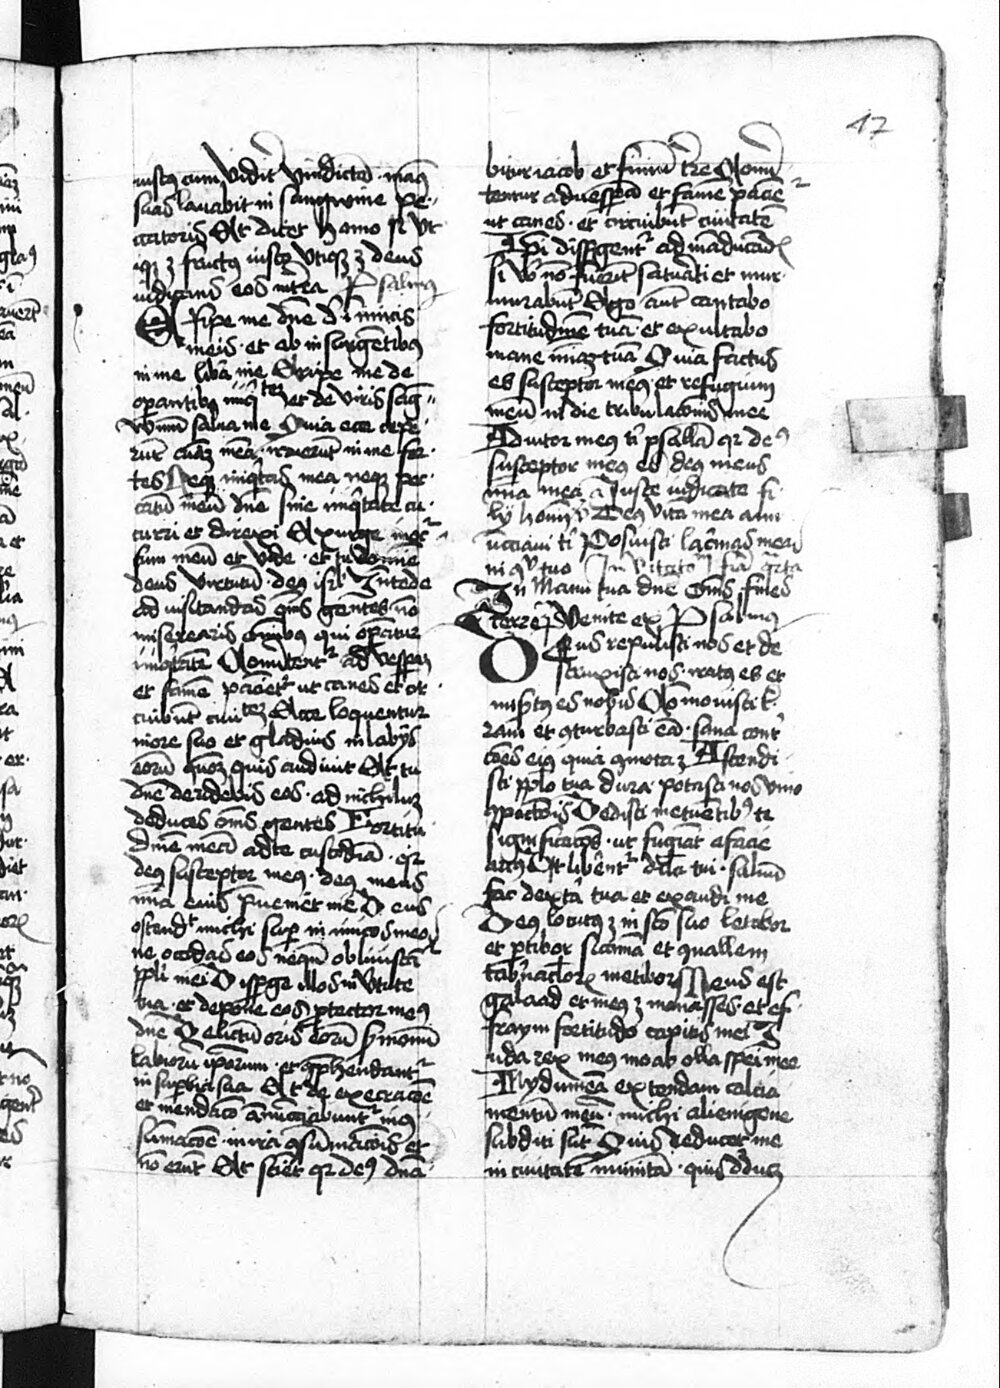 47
iustus cum viderit vindictam · man9
suas lavabit in sanguine pe·
ccatoris Et dicet homo si vt
iqz ꝫ fructus iusto vtiqz ꝫ deus
iudicans eos in terra Psalmus
Eripe me dne de inimicis
meis · et ab insurgentibus
in me libera me Eripe me de
operantibus iniqtatez et de viris sang
winum salua me Quia ecce cepe
runt animam mea · irruerunt in me for·
tes Neqz iniqtas mea neqz pec·
catum meum dne sine iniqtate cu·
curri et direxi Exurge in occur
sum meum et vide · et tu domine
deus virtutum · deus isrl Intende
ad visitandas oms gentes · no
miserearis omnibus qui operantur
iniqtatem Convertentur ad vesperam
et famem patientur ut canes et cir·
cuibunt ciuitatez Ecce loquentur
in ore suo et gladius in labijs
eorum quoniam quis audiuit Et tu
dne deridebis eos · ad nichiluz
deduces oms gentes Fortitu·
dinem meam ad te custodiam · qr
deus susceptor meus · deus meus
mia eius preueniet me Deus
ostendit michi super inimicos meos
ne occidas eos neqn obliuiscantur
ppli mei Disperge illos in virtute
tua · et depone eos protector meus
dne Delictum oris eorum sermonem
labiorum ipsorum · et comprehendantur
in superbia sua Et de execracione
et mendacio annunciabuntur in
sumacione · in ira consumacionis et
no erunt Et scient qr deus dna·
bitur iacob et finium terre Conuer
tentur ad vesperam et famem patientur
ut canes · et circuibunt ciuitatem
Ipsi dispergentur ad manducandum
si vero non fuerint saturati et mur·
murabunt Ego autem cantabo
fortitudinem tuam · et exultabo
mane miam tuam Quia factus
es susceptor meus et refugium
meum in die tribulacionis mee
Adiutor meus tibi psallam qr deus
susceptor meus es deus meus
mia mea a Iuste iudicate fi·
lij hominum Deus vita mea annu
nciaui tibi Posuisti lacrimas meas
in qspectu tuo Invitato
In manu tua dne oms fines
terre Venite ex Psalmus
Deus repulisti nos et de
struxisti nos · iratus es et
misertus es nobis Comouisti ter·
ram et conturbasti eam · sana cont
ciones eius quia comota ꝫ Ostendi·
sti pplo tuo dura · potasti nos vino
conpunctionis Dedisti metuentibus te
significacionem · ut fugiant a facie
arcus Ut liberentur dilecti tui · saluum
fac dextera tua et exaudi me
Deus locutus ꝫ in sco suo letabor
et partibor siccimam et conuallem
tabernaculorum metibor Meus est
galaad et meus ꝫ manasses · et ef·
fraym fortitudo capitis mei I
uda rex meus moab olla spei mee
In ydumeam extendam calcia
mentum meum · michi alienigene
subditi sunt Quis deducet me
in ciuitatem munitam · quis deducz